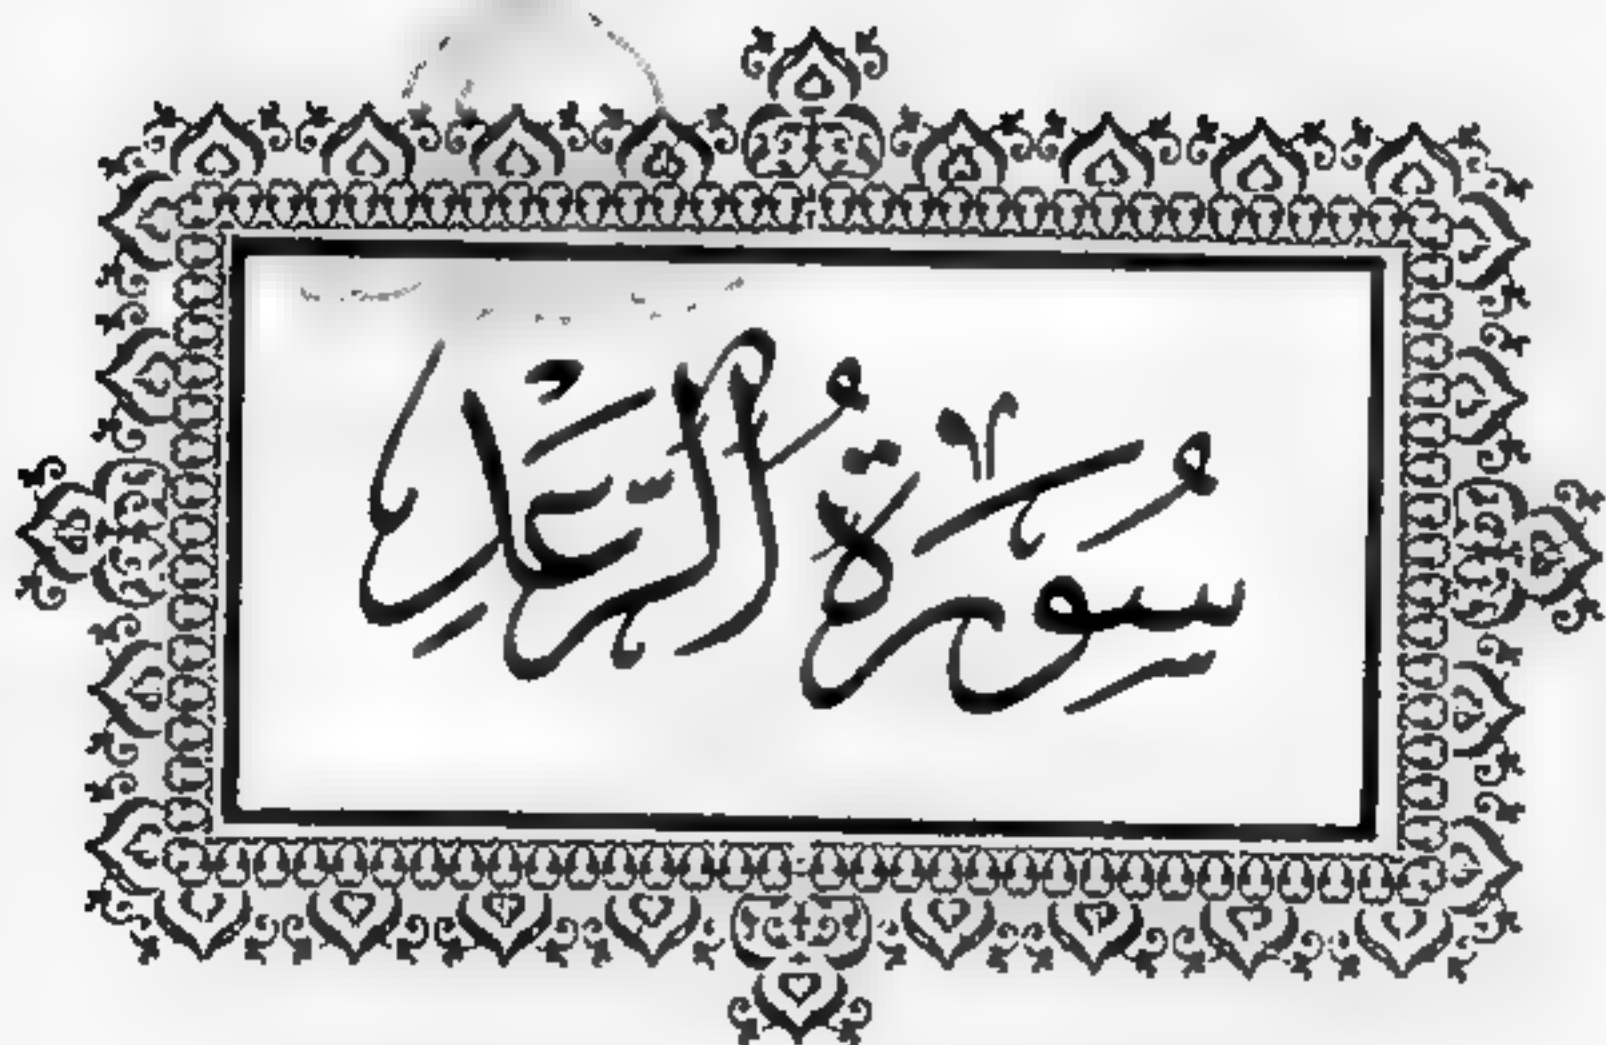 سُورَةُ الرَّعْدِ